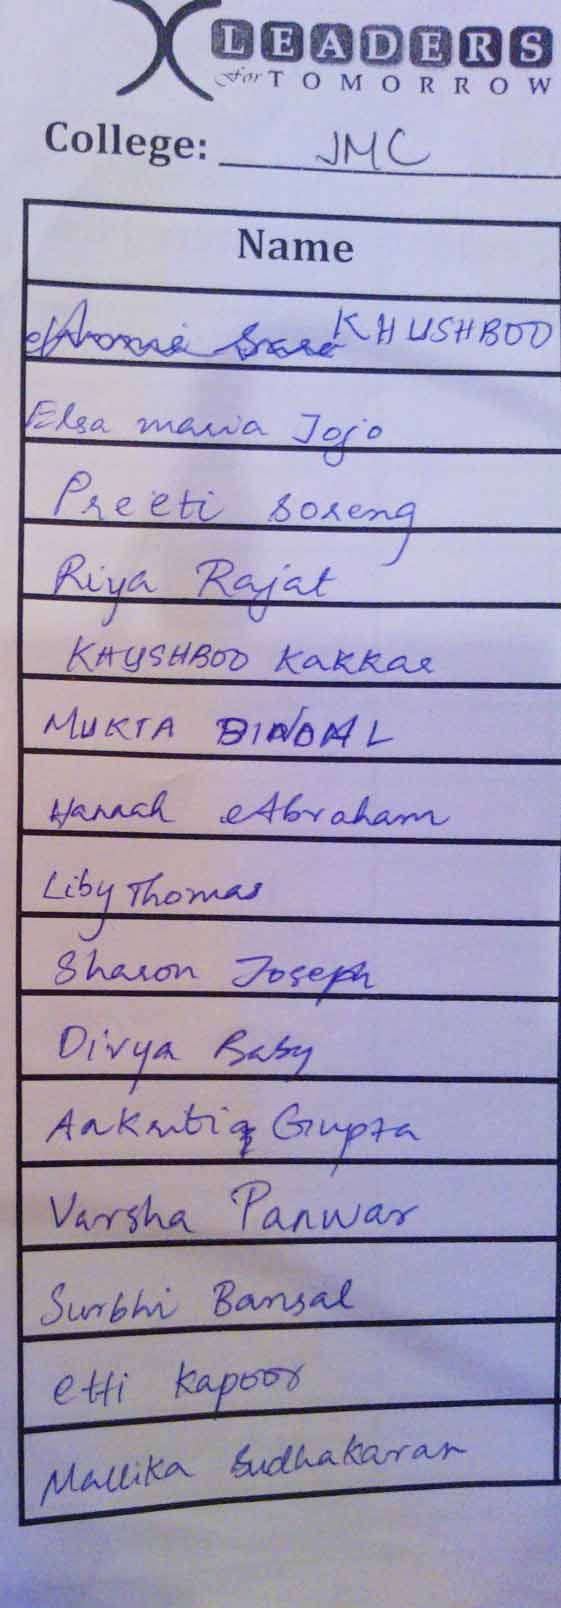 LEADERS
For TOMORROW
College: JMC
Name
KHUSHBOO
Elsa maria Jojo
Preeti Soreng
Riya Rajat
KHUSHBOO Kakkar
MUKTA BINDAL
Hannah Abraham
Liby Thomas
Sharon Joseph
Divya Baby
Gupta
Varsha Panwar
Surbhi Bansal
etti kapoor
Mallika Sudhakaran